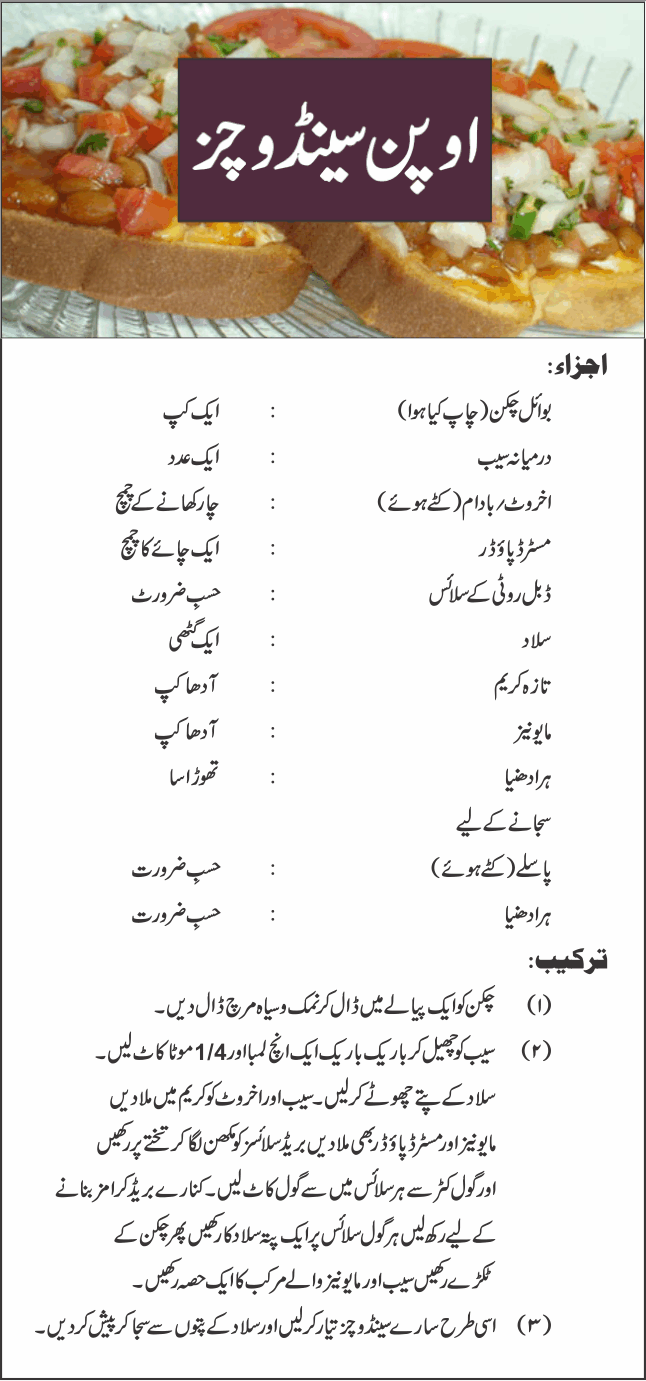 اوپن سینڈوچز
اجزاء:
بوائل چکن (چاپ کیا ہوا) : ایک کپ
درمیانہ سیب : ایک عدد
اخروٹ؍بادام (کٹے ہوئے) : چار کھانے کے چمچ
مسٹرڈ پاؤڈر : ایک چائے کا چمچ
ڈبل روٹی کے سلائس : حسبِ ضرورٹ
سلاد : ایک گٹھی
تازہ کریم : آدھا کپ
مایونیز : آدھا کپ
ہرا دھنیا : تھوڑا سا
سجانے کے لیے
پاسلے (کٹے ہوئے) : حسبِ ضرورت
ہرا دھنیا : حسبِ ضرورت
ترکیب:
(۱) چکن کو ایک پیالے میں ڈال کر نمک و سیاہ مرچ ڈال دیں۔
(۲) سیب کو چھیل کر باریک باریک ایک انچ لمبا اور 1/4 موٹا کاٹ لیں۔
سلاد کے پتے چھوٹے کر لیں۔ سیب اور اخروٹ کو کریم میں ملا دیں
مایونیز اور مسٹرڈ پاؤڈر بھی ملا دیں بریڈ سلائسز کو مکھن لگا کر تختے پر رکھیں
اور گول کٹر سے ہر سلائس میں سے گول کاٹ لیں۔ کنارے بریڈ کرامز بنانے
کے لیے رکھ لیں ہر گول سلائس پر ایک پتہ سلاد کا رکھیں پھر چکن کے
ٹکڑے رکھیں سیب اور مایونیز والے مرکب کا ایک حصہ رکھیں۔
(۳) اسی طرح سارے سینڈوچز تیار کر لیں اور سلاد کے پتوں سے سجا کر پیش کر دیں۔